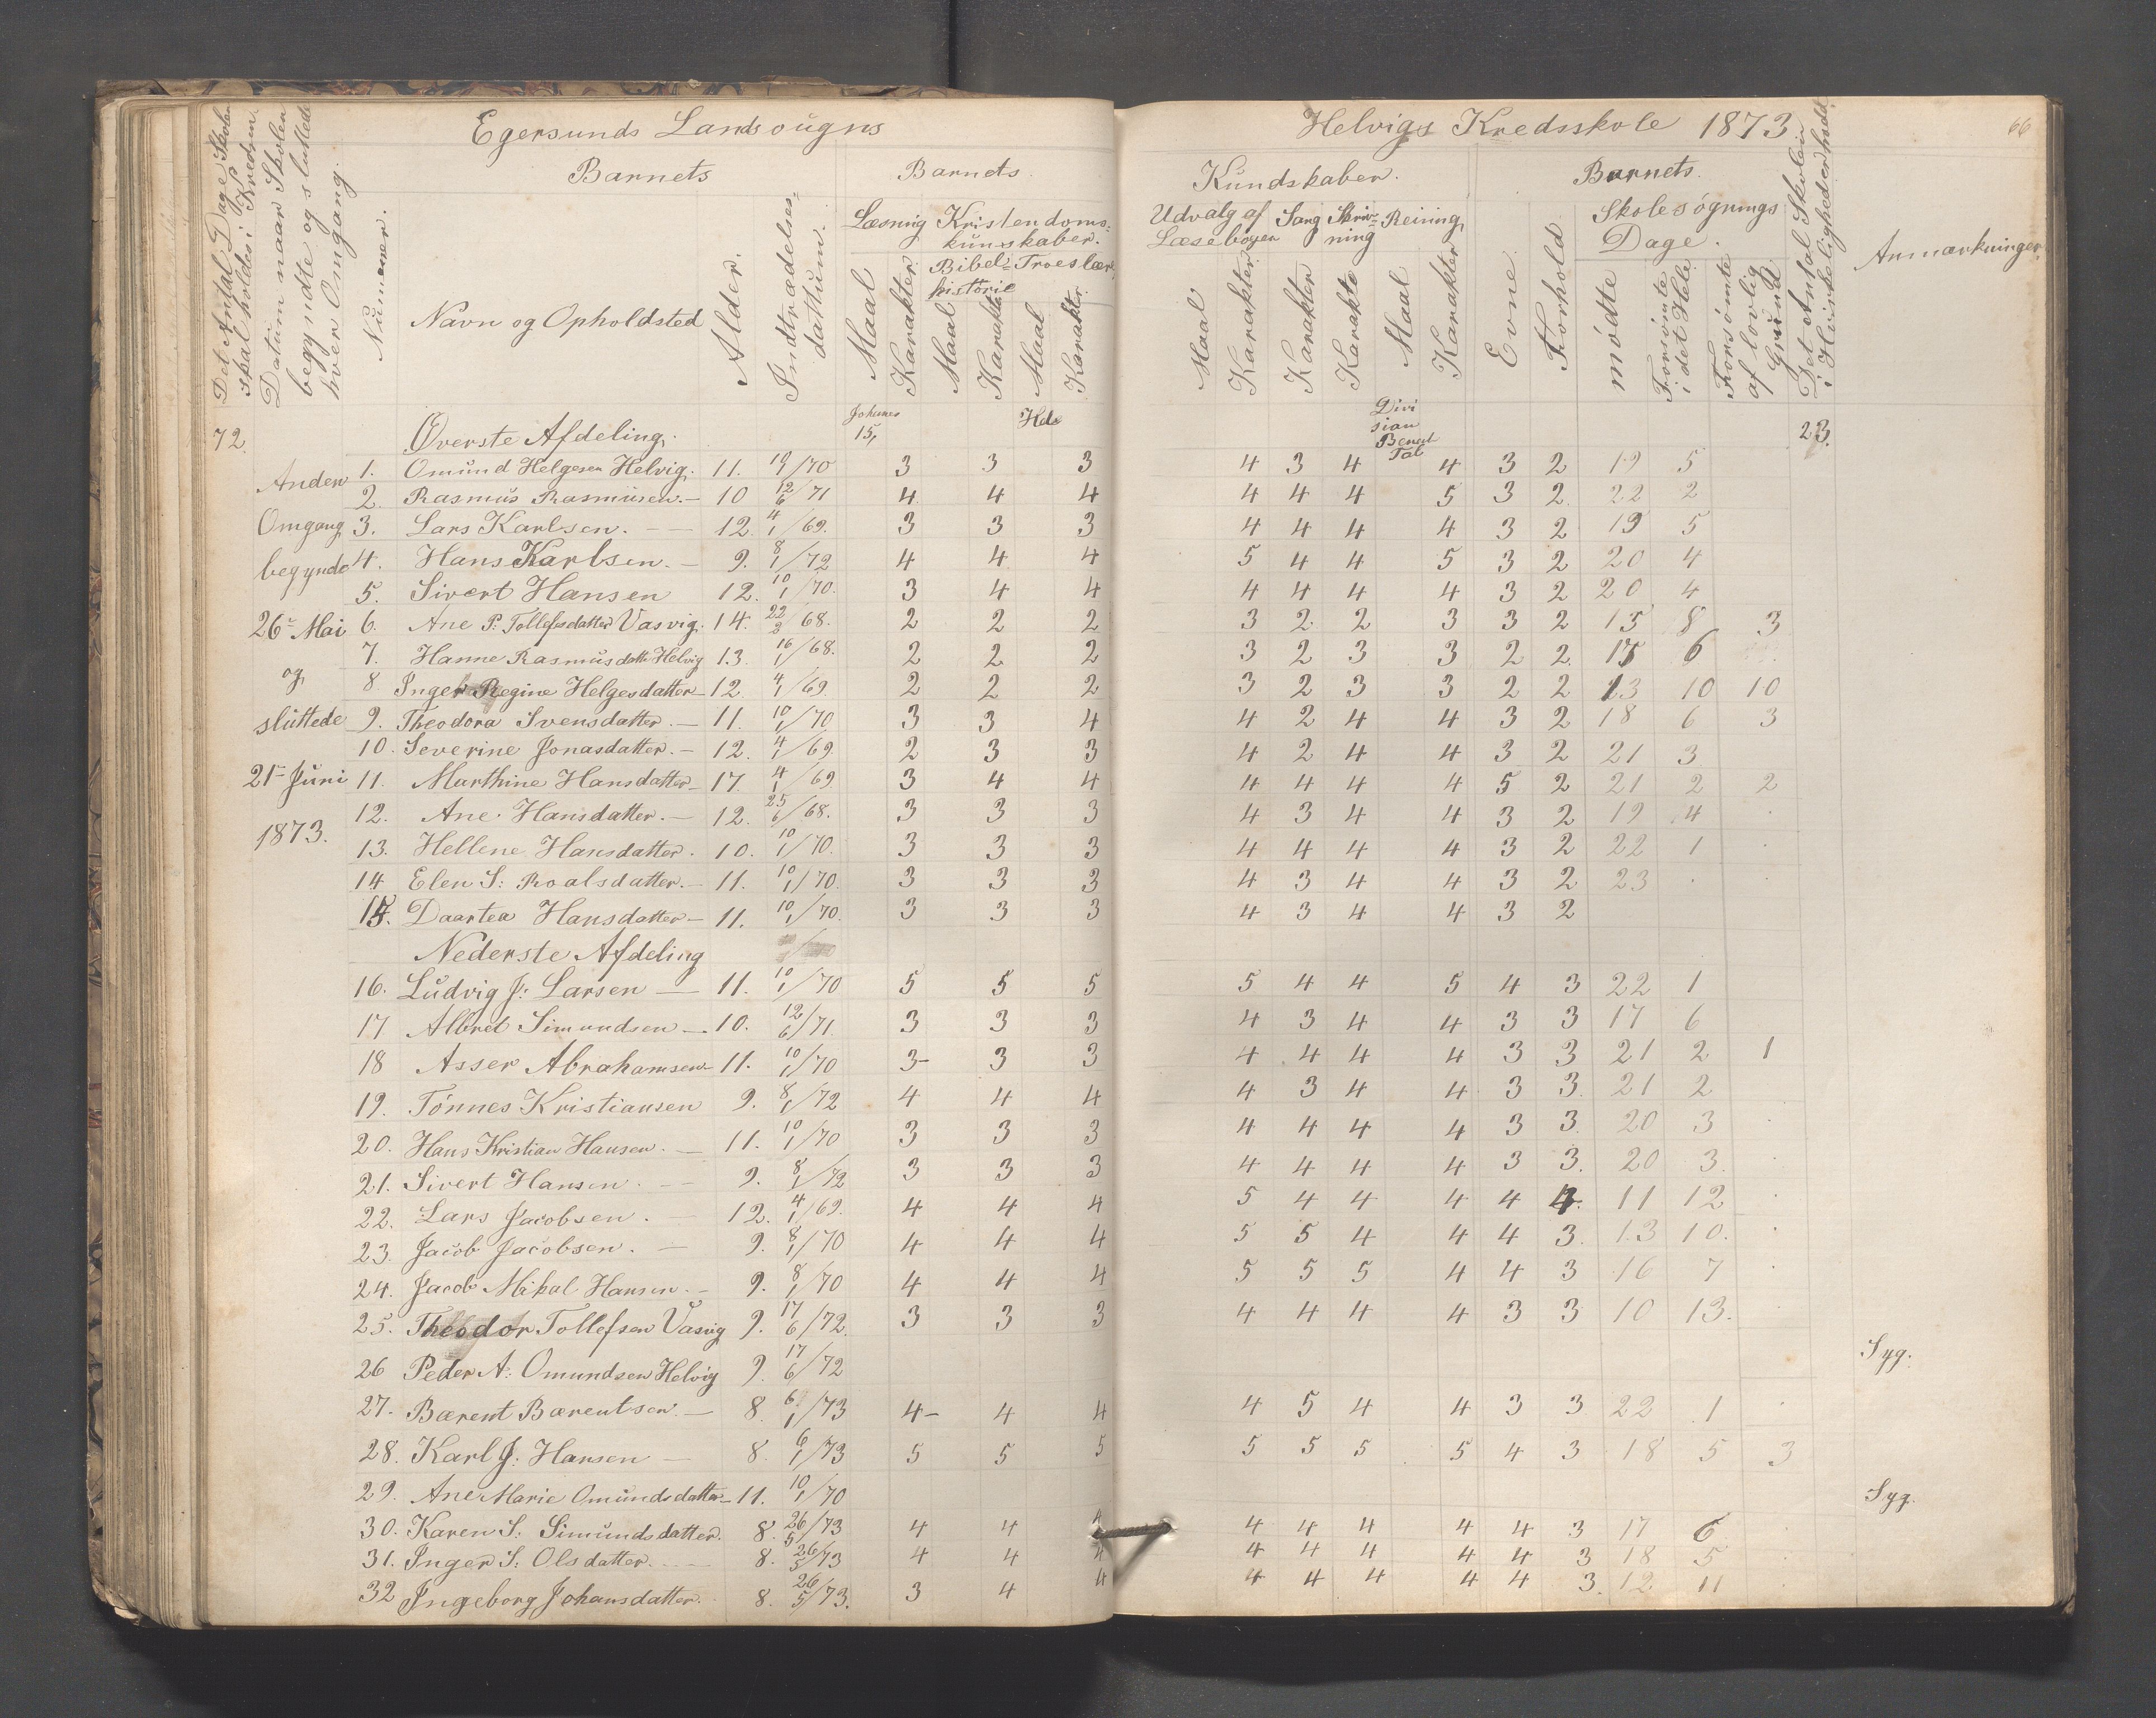 Egersunds Landsougns
Helvigs Kredsskole 1873.
66
Det Antal Dage Skolen
skal holdes i Kredsen.
Datum naar Skolen
begyndte og sluttede
hver Omgang.
Nummer.
Barnets
Navn og Opholdsted
Alder.
Indtrædelses-
datum.
Barnets
Læsning Kristendoms-
kunskaber.
Bibel- Troeslær
historie
Maal Karakter. Maal Karakter Maal Karakter
Kundskaber.
Udvalg af Sang Skriv- Reining
Læsebogen ning
Maal Karakter Karakter Karakte Maal Karakter
Evne Forhold
Barnets.
Skolesøgnings
Dage.
mødte
Forsømte
i det Hele
Forsømte
af lovlig
Grund
Det Antal Skolen
i Virkeligheden holdt
Anmærkninger
72. Øverste Afdeling. 15, Divi
sian
Benevt
Tal 23.
Anden
Omgang
begyndt
26- Mai
og
sluttede
21- Juni
1873.
1. Omund Helgesen Helvig. 11. 10/1/70 3 3 3 4 3 4 4 3 2 19 5
2. Rasmus Rasmusen. — 10 12/6/71 4 4 4 4 4 4 5 3 2 22 2
3. Lars Karlsen. — 12 4/1/69. 3 3 3 4 4 4 4 3 2 19 5
4. Hans Karlsen. — 9. 8/1/72 4 4 4 5 4 4 5 3 2 20 4
5. Sivert Hansen 12. 10/1/70. 3 4 4 4 4 4 4 3 2 20 4
6. Ane P: Tollefsdatter Vasvig. 14. 22/2/68. 2 2 2 3 2 2 3 3 2 15 8 3
7. Hanne Rasmusdatt: Helvig 13. 16/1/68. 2 2 2 3 2 3 3 2 2 17 6
8 Inger Regine Helgesdatter — 12 4/1/69. 2 2 2 3 2 3 3 2 2 13 10 10
9. Theodora Svensdatter. — 11. 10/1/70 3 3 4 4 2 4 4 3 2 18 6 3
10. Severine Jonasdatter. — 12. 4/1/69 2 3 3 4 2 4 4 3 2 21 3
11. Marthine Hansdatter — 17. 4/1/69. 3 4 4 4 4 4 4 5 2 21 2 2
12. Ane Hansdatter. — 12. 25/6/68. 3 3 3 4 3 4 4 3 2 19 4
13. Hellene Hansdatter. 10. 10/1/70. 3 3 3 4 4 4 4 3 2 22 1
14 Elen S: Roalsdatter. — 11. 10/1/70. 3 3 3 4 3 4 4 3 2 23
15. Daartea Hansdatter — 11. 10/1/70. 3 3 3 4 3 4 4 3 2
Nederste Afdeling
16. Ludvig J: Larsen — 11. 10/1/70 5 5 5 5 4 4 5 4 3 22 1
17 Albret Simundsen — 10. 12/6/71. 3 3 3 4 3 4 4 3 3 17 6
18 Asser Abrahamsen — 11. 10/1/70 3- 3 3 4 4 4 4 3 3 21 2 1
19. Tønnes Kristiansen 9. 8/1/72 4 4 4 4 3 4 4 3 3. 21 2
20. Hans Kristian Hansen. — 11. 10/1/70 3 3 3 4 4 4 4 3 3. 20 3
21. Sivert Hansen. — 9. 8/1/72 3 3 3 4 4 4 4 3 3. 20 3.
22. Lars Jacobsen. — 12. 4/1/69. 4 4 4 5 4 4 4 4 11 12
23. Jacob Jacobsen. — 9. 8/1/70 4 4 4 5 5 4 4 4 3. 13 10.
24. Jacob Mikal Hansen. — 9. 8/1/70 4 4 4 5 5 5 4 4 3 16 7
25. Theodor Tollefsen Vasvig 9. 17/6/72. 3 3 3 4 4 4 4 3 3 10 13.
26 Peder A: Omundsen Helvig 9. 17/6/72 Syg.
27. Bærent Bærentsen. — 8. 6/1/73 4- 4 4 4 5 4 4 3 3 22 1
28. Karl J. Hansen — 8. 6/1/73 5 5 5 5 5 5 5 4 3 18 5 3
29. Ane Marie Omundsdatter — 11. 10/1/70 Syg.
30. Karen S: Simundsdatter. 8. 26/5/73 4 4 4 4 4 4 4 4 3 17 6
31. Inger S: Olsdatter. — 8. 26/5/73 4 4 4 4 4 4 4 4 3 18 5
32 Ingeborg Johansdatter. 8. 26/5/73. 3 4 4 4 4 4 4 4 3. 12 11